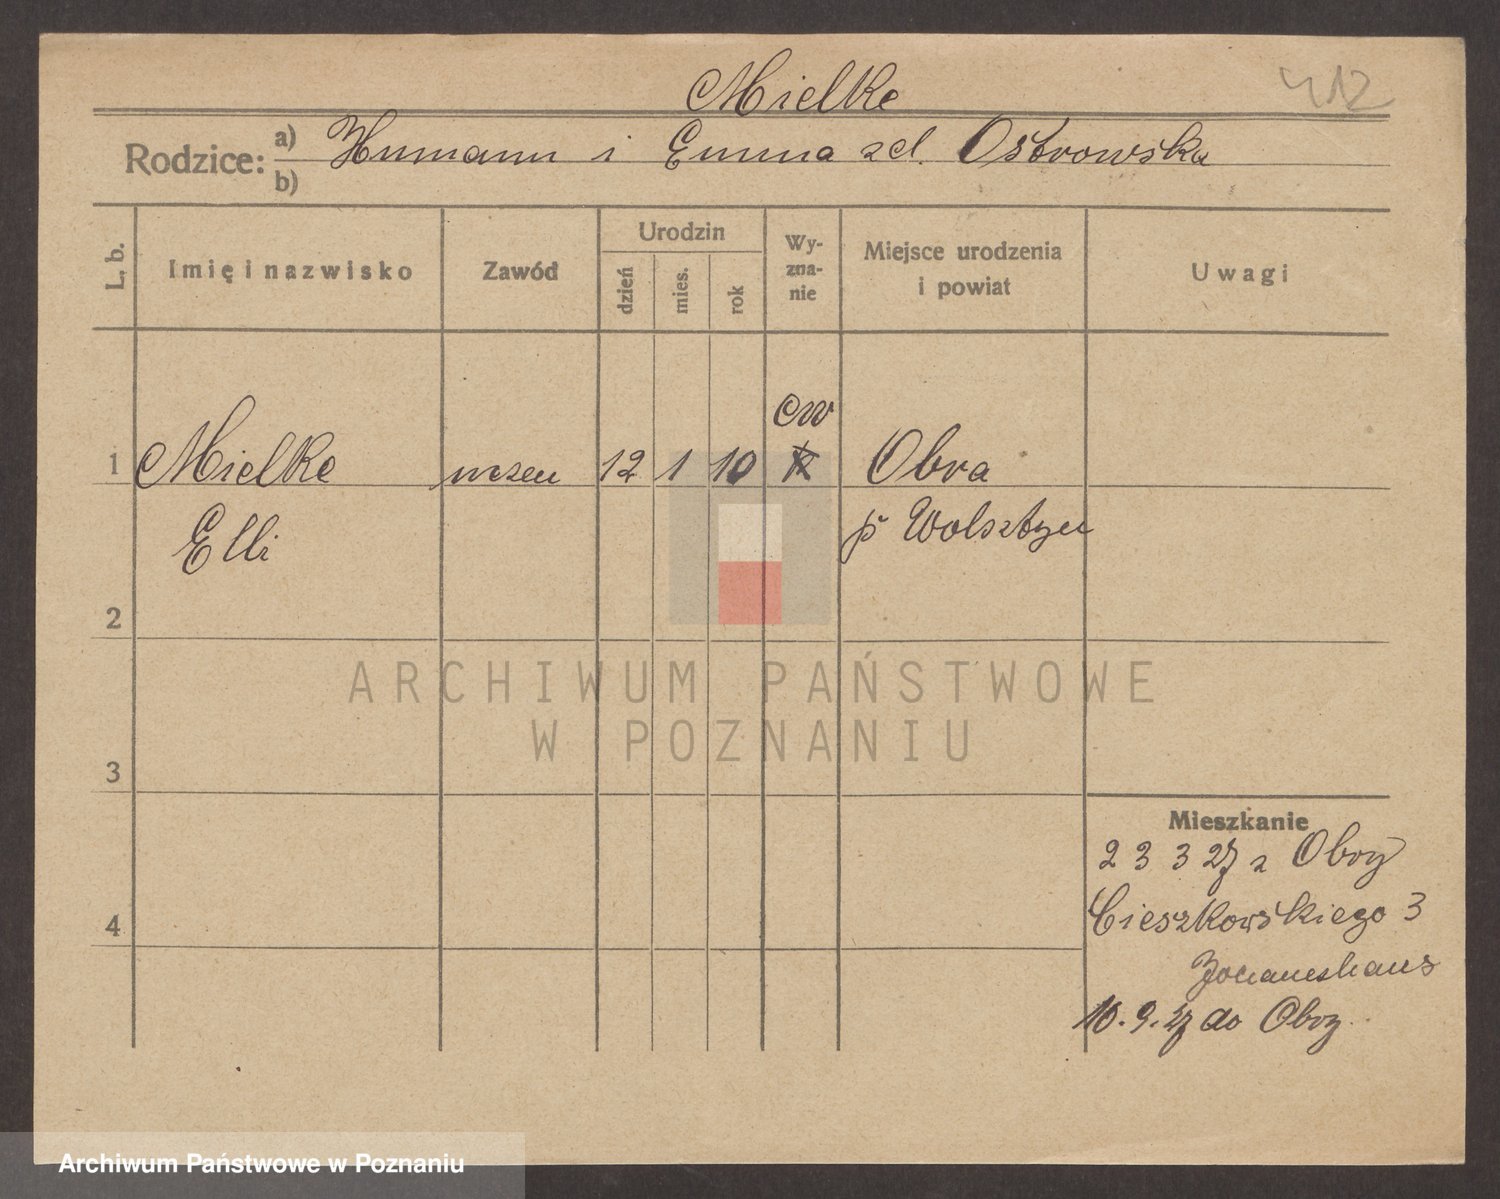 Mielke
412
Rodzice: a) Hermann i Emma zd. Ostrowska
b)
L. b.
Imię i nazwisko
Zawód
Urodzin
dzień
mies.
rok
Wy-
zna-
nie
Miejsce urodzenia
i powiat
Uwagi
ew
1 Mielke uczen 12 1 10 k Obra
Elli
p Wolsztyn
2
3
4
Mieszkanie
23 3 27 z Obry
Cieszkowskiego 3
Johaneshaus
10. 9. 27 do Obry
ARCHIWUM PAŃSTWOWE
W POZNANIU
Archiwum Państwowe w Poznaniu